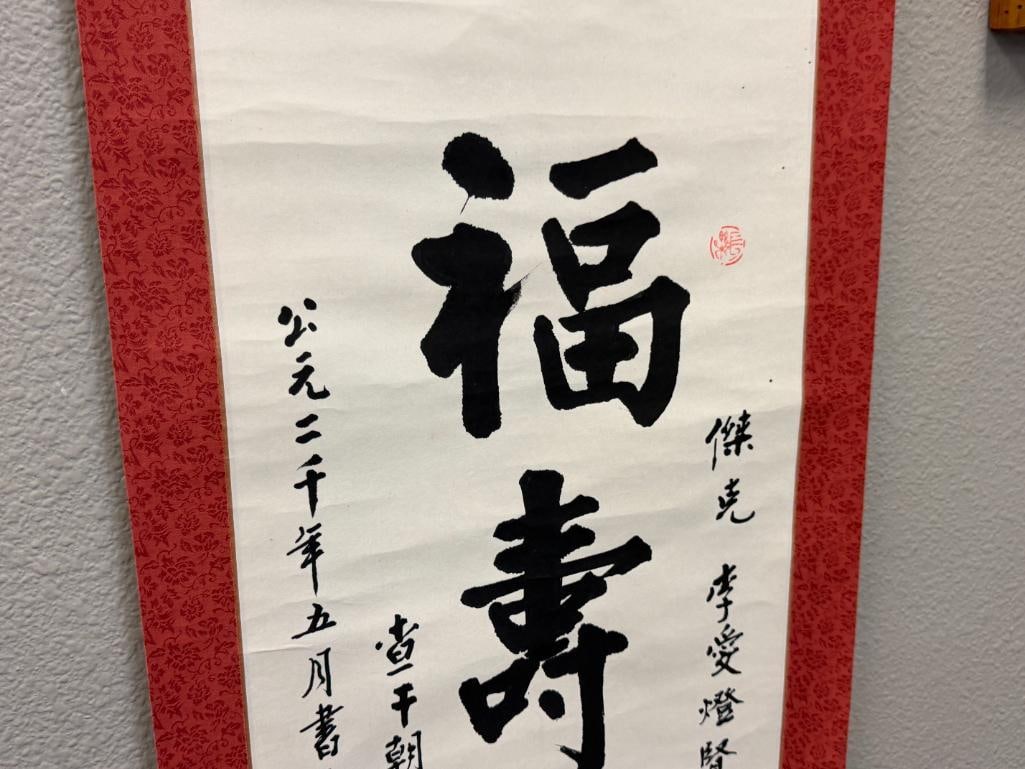 福壽
傑克 李愛燈賢
公元二千年五月書
干朝